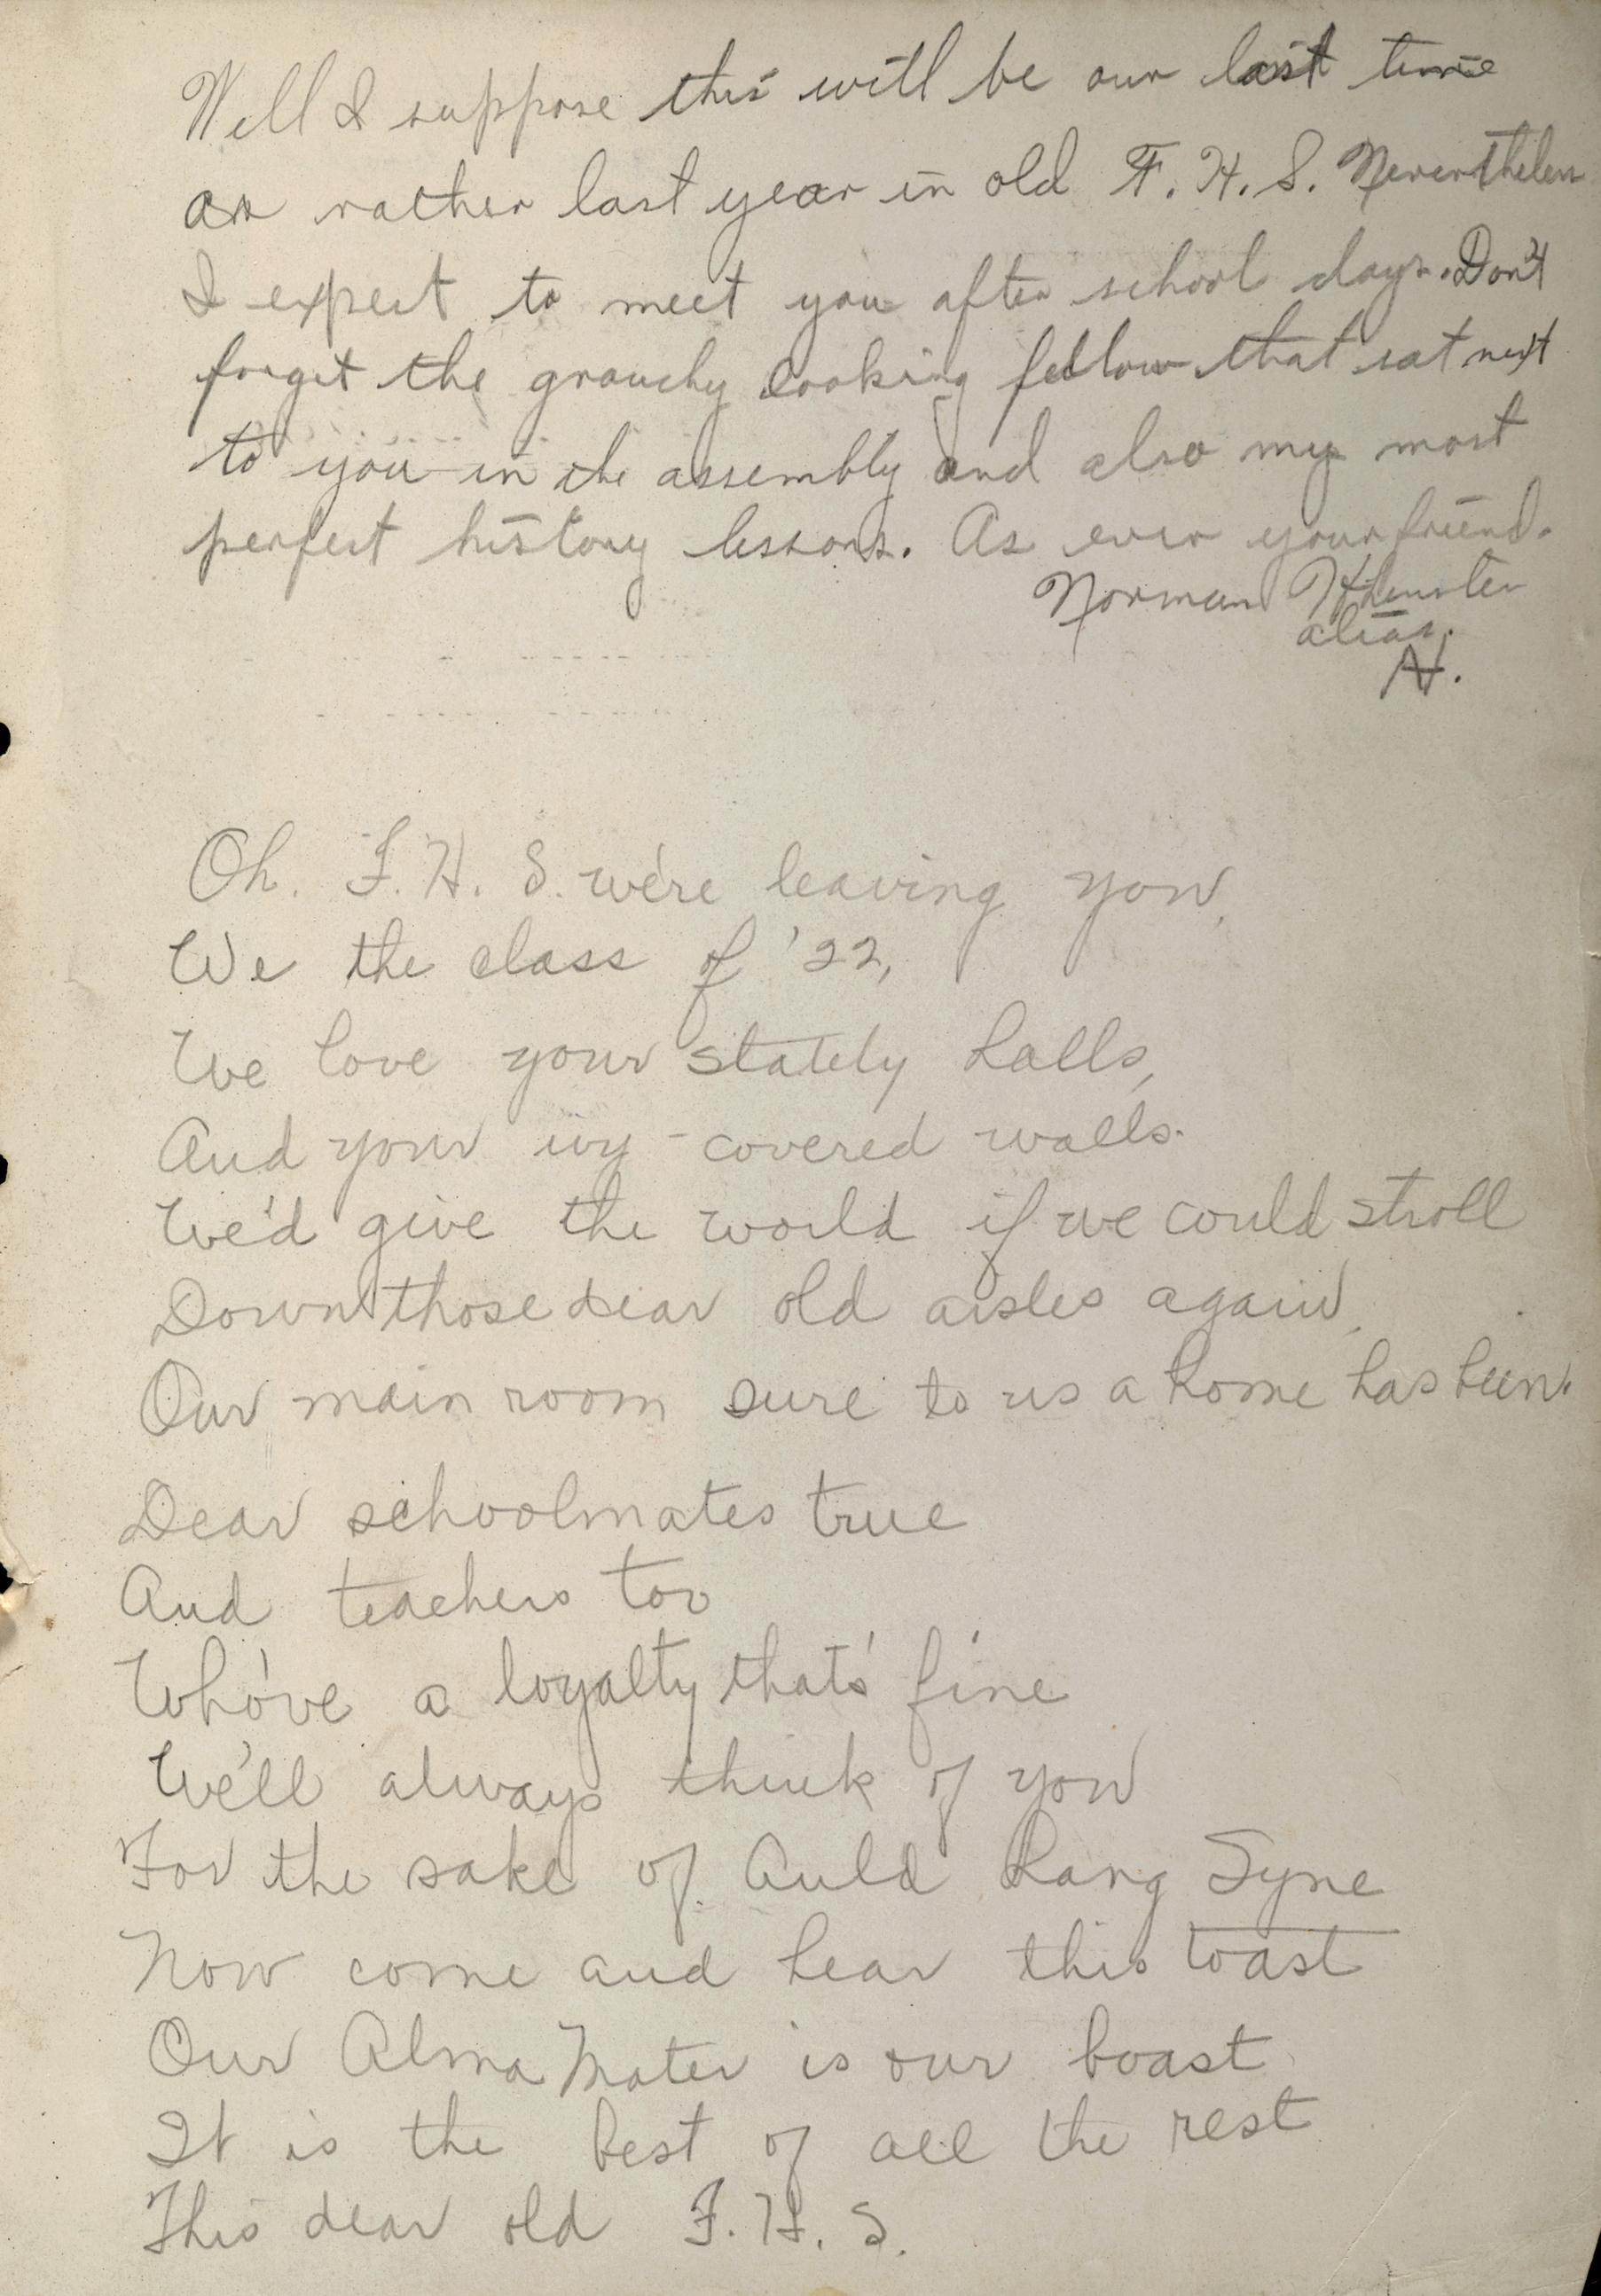 Well I suppose this will be our last time
or rather last year in old F. H. S. Nevertheless
I expect to meet you after school days. Don't
forget the grouchy looking fellow that sat next
to you in the assembly and also my most
perfect history lessons. As ever your friend.
Norman
alias.
H.
Oh. F. H. S. we're leaving you,
We the class of '22,
We love your stately halls,
And your ivy-covered walls.
We'd give the world if we could stroll
Down those dear old aisles again,
Our main room sure to us a home has been.
Dear schoolmates true
And teachers too
Who've a loyalty that's fine
We'll always think of you
For the sake of Auld Lang Syne
Now come and hear this toast
Our Alma Mater is our boast
It is the best of all the rest
This dear old F. H. S.